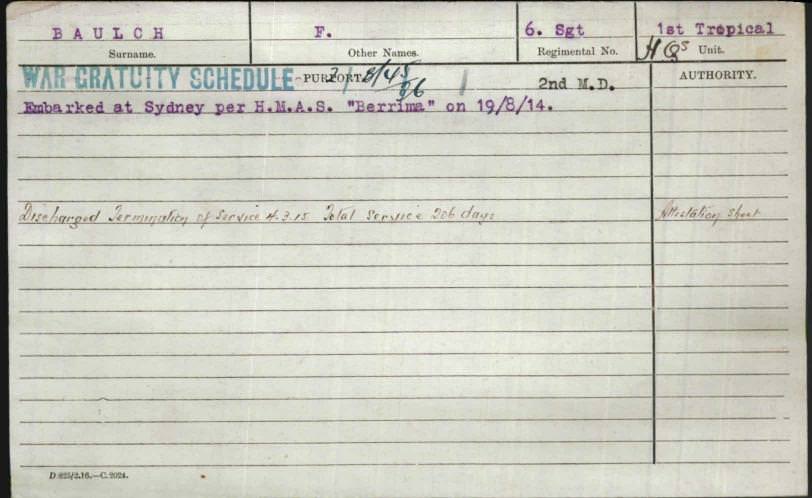 BAULCH F. 6. Sgt 1st Tropical
Surname. Other Names. Regimental No. HQs Unit.
WAR GRATUITY SCHEDULE PURPORT. 2nd M.D. AUTHORITY.
Embarked at Sydney per H.M.A.S. "Berrima" on 19/8/14.
Discharged Termination of Service 4.3.15 Total Service 206 days Attestation Sheet
D.825/2.16.—C.2024.